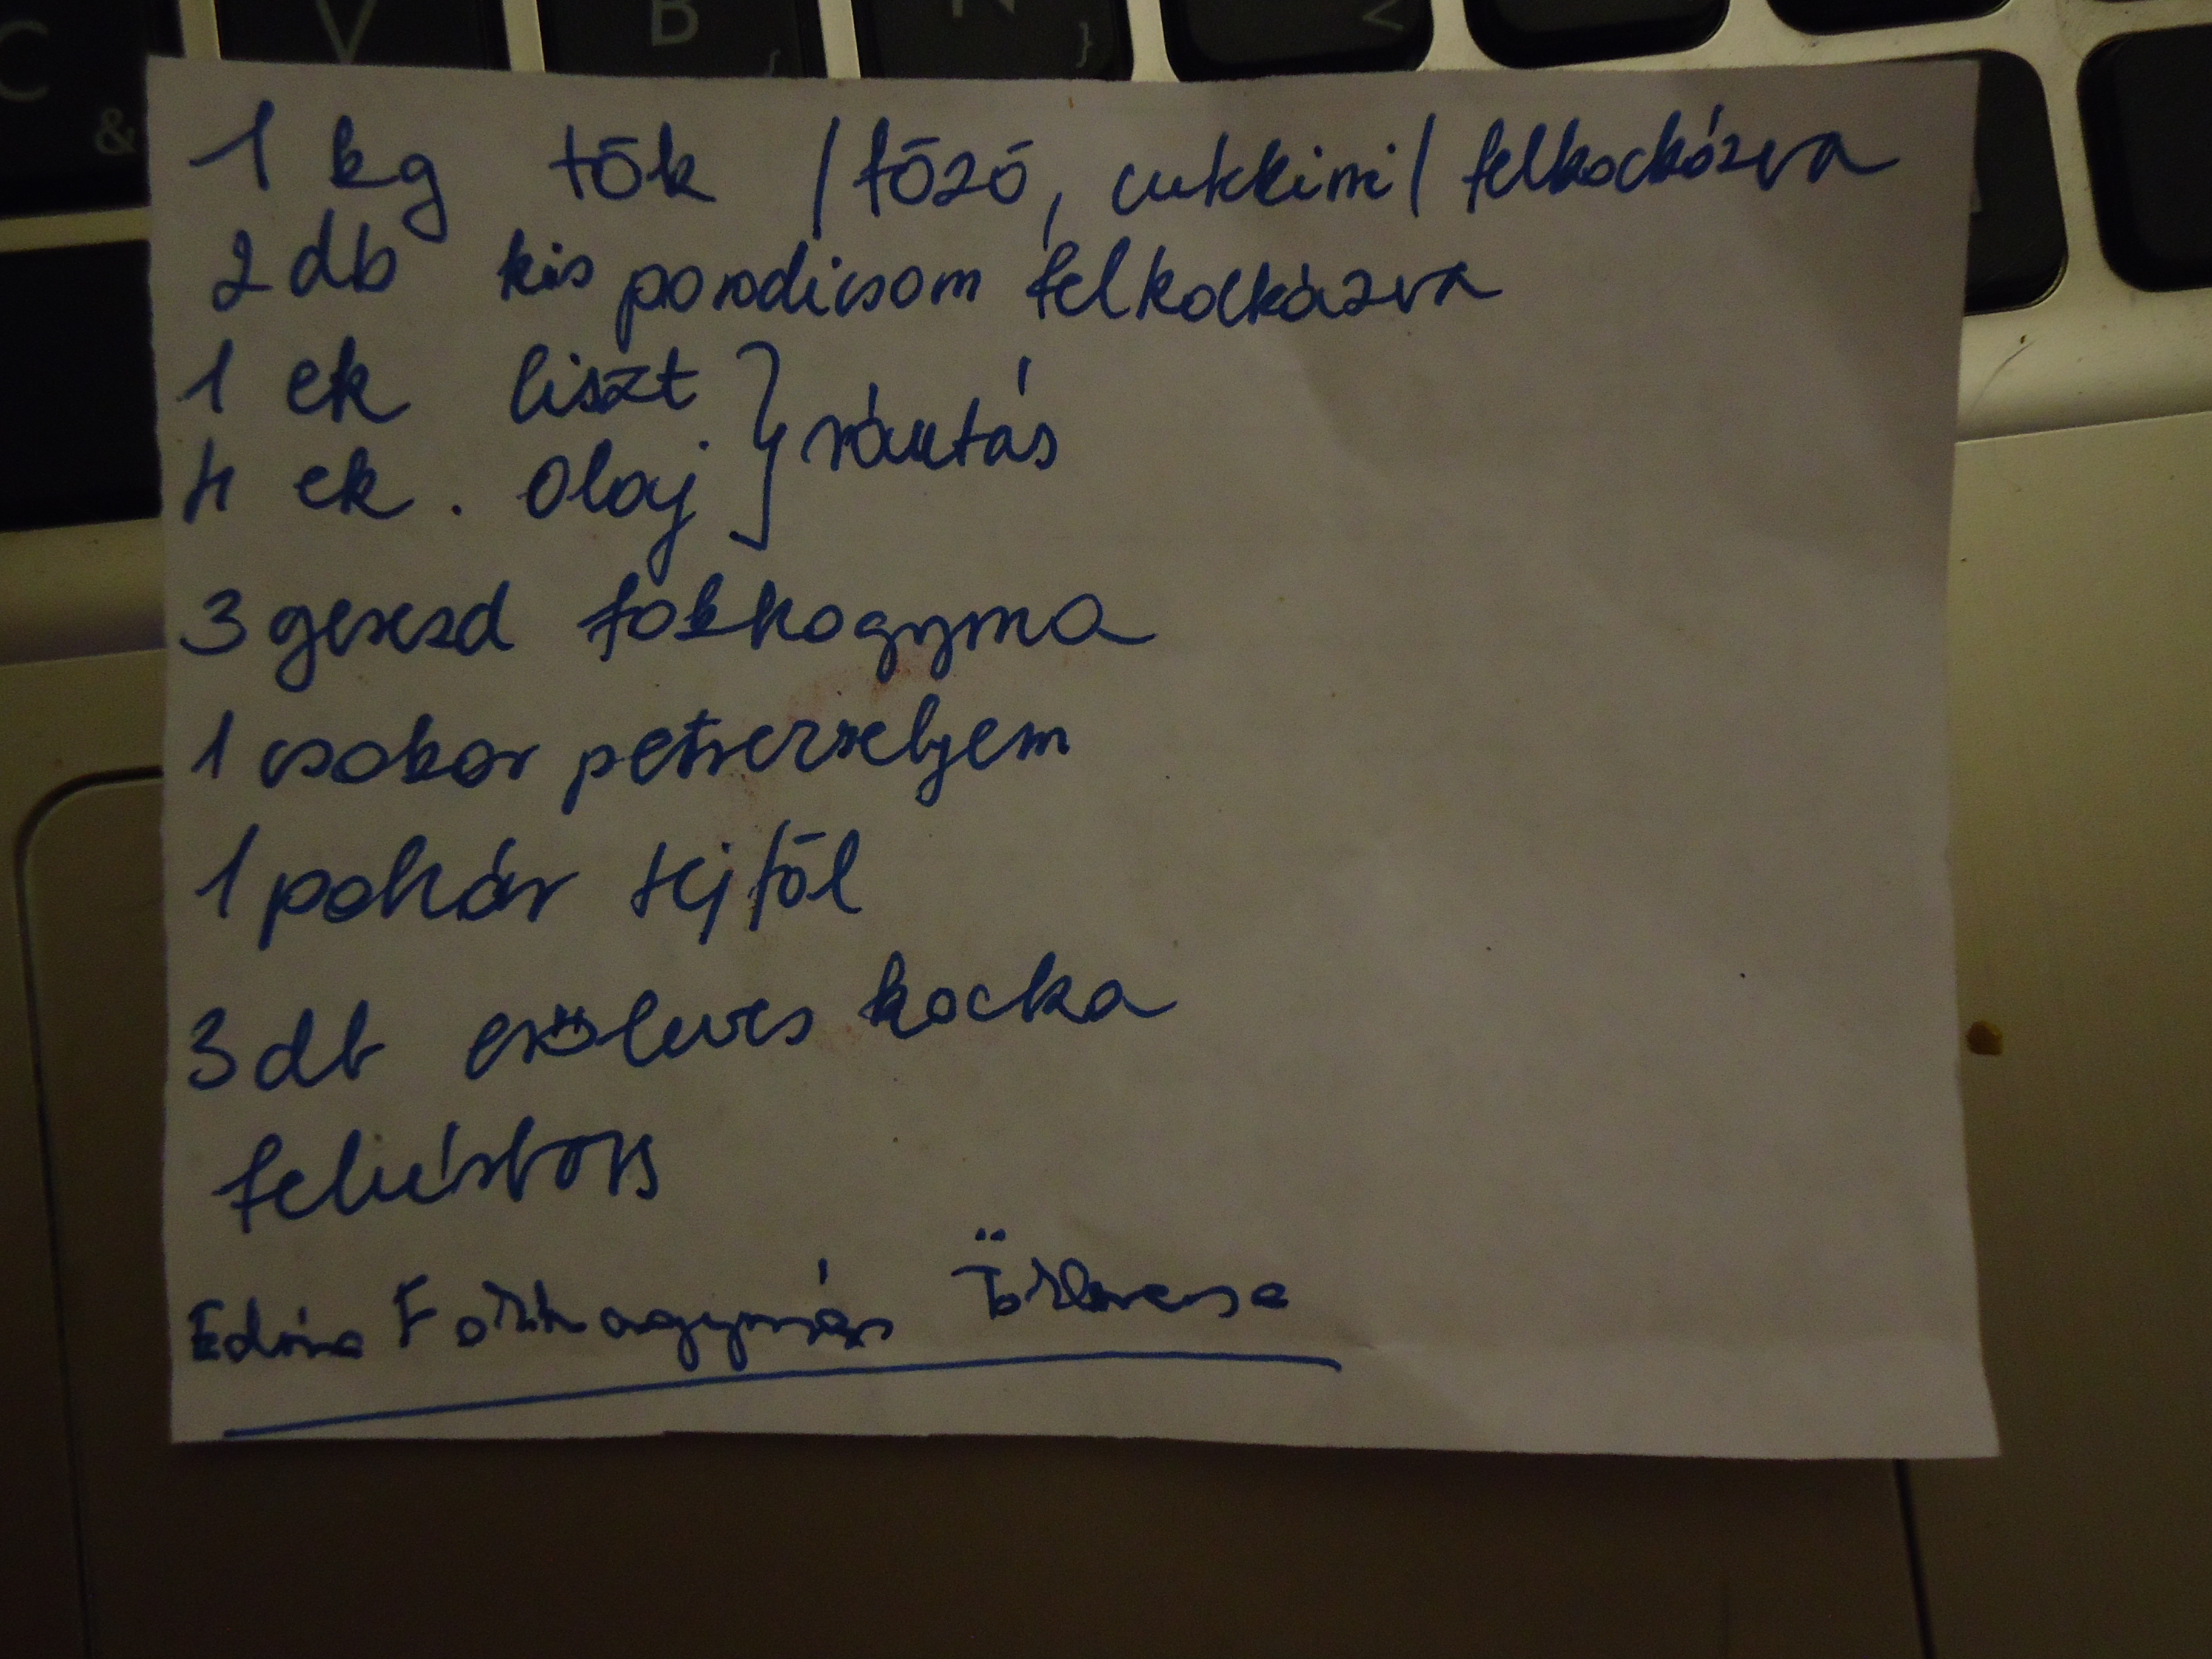 C V B N <
& { }
1 kg tök /főző, cukkini/ felkockázva
2 db kis paradicsom felkockázva
1 ek liszt } rántás
4 ek. olaj
3 gerezd fokhagyma
1 csokor petrezselyem
1 pohár tejföl
3 db erőleves kocka
fehérbors
Edina Fokhagymás Töklevese